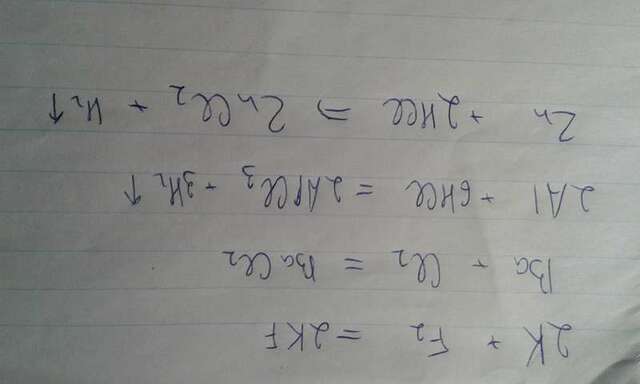 2K + F₂ = 2KF
Ba + Cl₂ = BaCl₂
2Al + 6HCl = 2AlCl₃ + 3H₂ ↑
Zn + 2HCl ⇒ ZnCl₂ + H₂ ↑